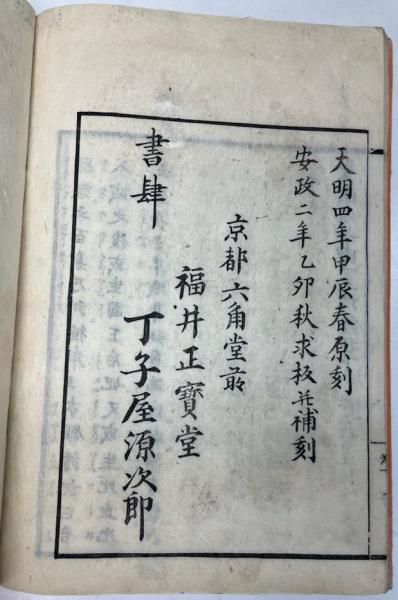 天明四年甲辰春原刻
安政二年乙卯秋求板并補刻
京都六角堂前
福井正寶堂
書肆
丁子屋源次郎